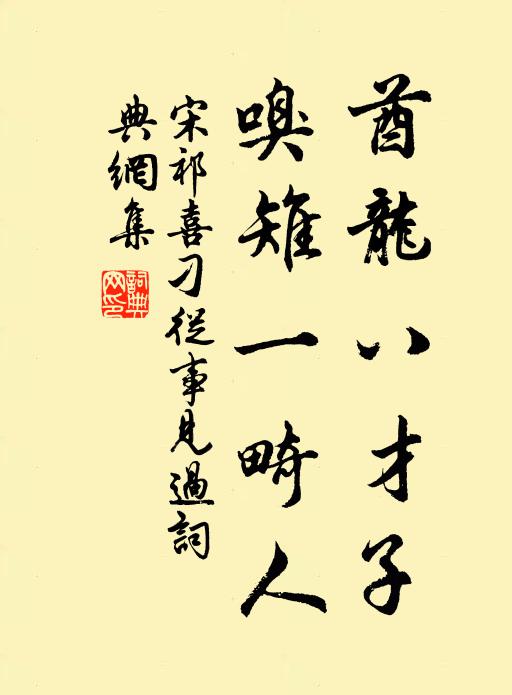 酋龍八才子
嗅雉一畸人
宋祁喜刁從事見過詞
典網集
詞典網印